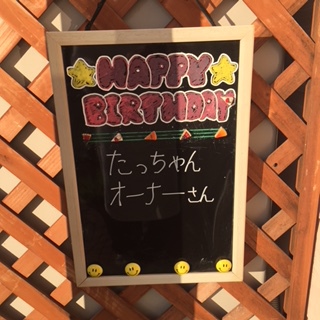 HAPPY
BIRTHDAY
たっちゃん
オーナーさん